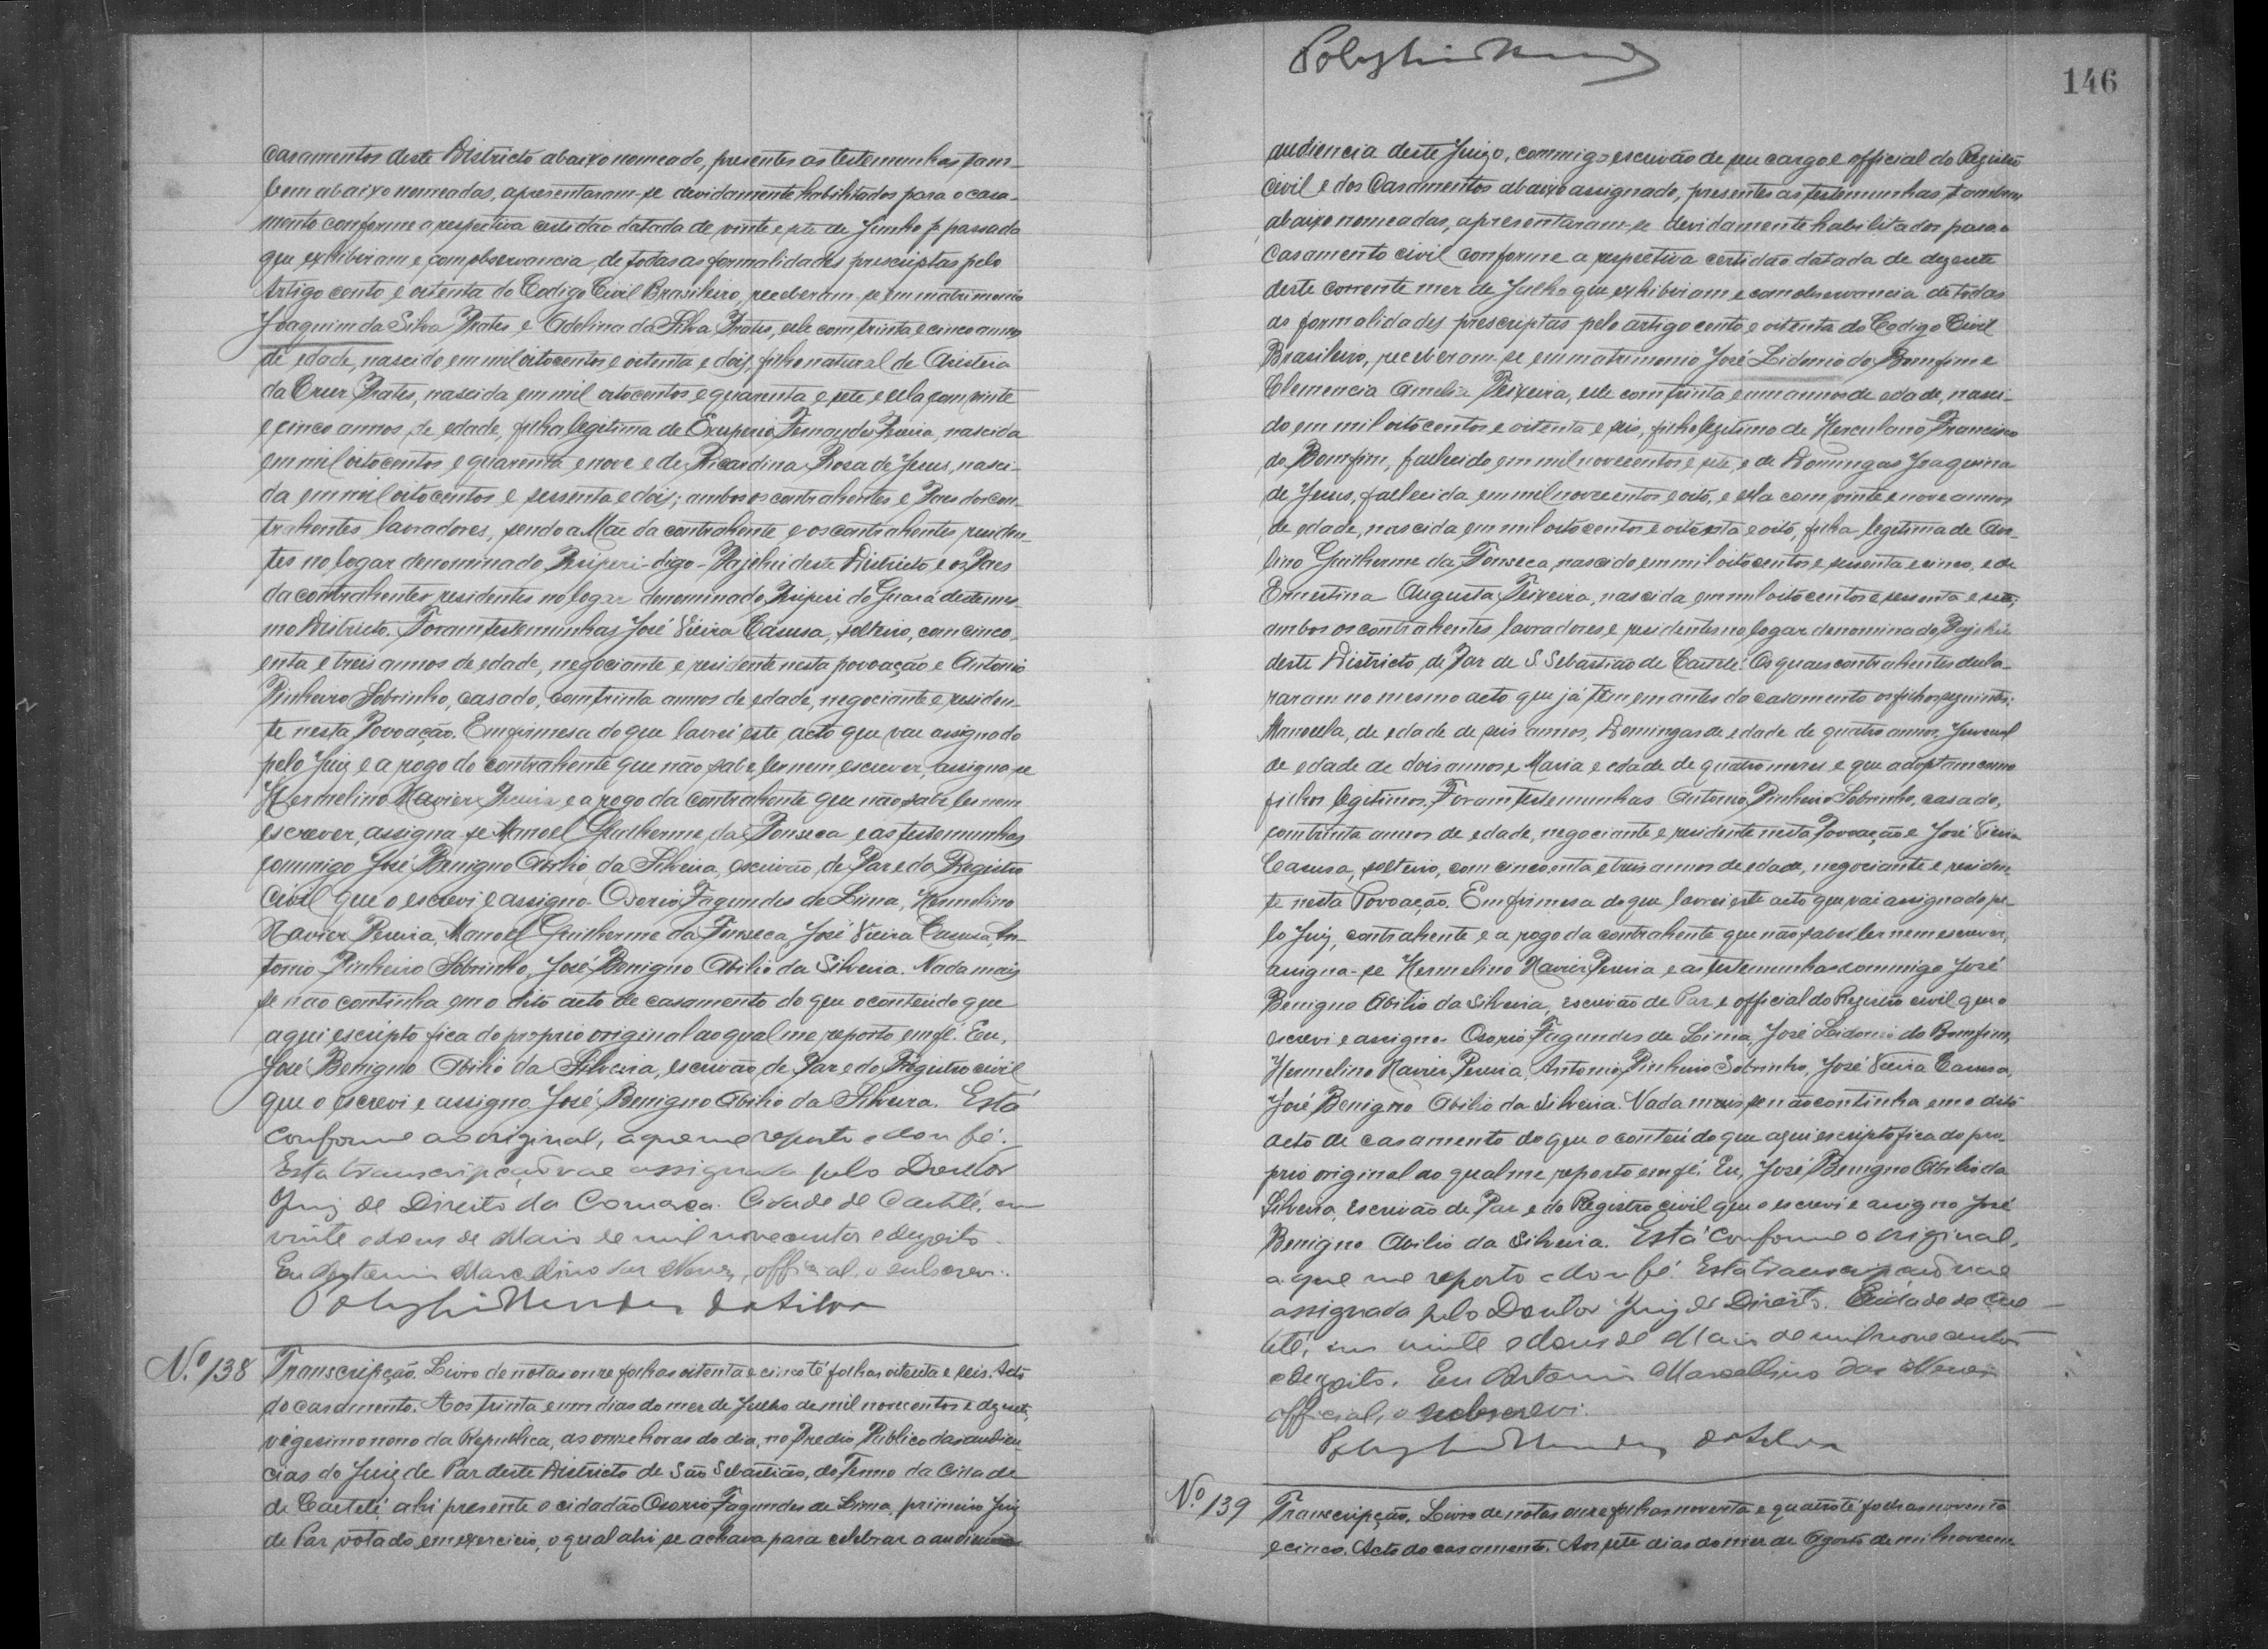 casamentos deste Districto abaixo nomeado, presentes as testemunhas tam-
bem abaixo nomeadas, apresentaram-se devidamente habilitados para o casa-
mento conforme a respectiva certidão datada de vinte e sete de Junho p. passado
que exhibiram e com observancia de todas as formalidades prescriptas pelo
Artigo cento e oitenta do Codigo Civil Brasileiro, receberam-se em matrimonio
Joaquim da Silva Prates e Adelina da Silva Prates, elle com trinta e cinco annos
de edade, nascido em mil oitocentos e oitenta e dois, filho natural de
da Cruz Prates, nascida em mil oitocentos e quarenta e sete e ella com vinte
e cinco annos de edade, filha legitima de Exuperio Fernandes Pereira, nascida
em mil oitocentos e quarenta e nove e de Ricardina Rosa de Jesus, nasci-
da em mil oitocentos e sessenta e dois; ambos os contrahentes e Paes dos con-
trahentes lavradores, sendo a Mãe da contrahente e os contrahentes residen-
tes no logar denominado digo-Pajehú deste Districto e os Paes
da contrahente residentes no logar denominado do Guará deste mes-
mo Districto. Foram testemunhas José Vieira Casusa, solteiro, com cinco-
enta e treis annos de edade, negociante e residente nesta povoação e Antonio
Pinheiro Sobrinho, casado, com trinta annos de edade, negociante e residen-
te nesta Povoação. Em firmesa do que lavrei este acto que vae assignado
pelo Juiz e a rogo do contrahente que não sabe ler nem escrever, assigna-se
Hermelino Xavier Pereira e a rogo da contrahente que não sabe ler nem
escrever, assigna-se Manoel Guilherme da Fonseca e as testemunhas
commigo José Benigno Abilio da Silveira, escrivão de Paz e do Registro
Civil que o escrevi e assigno. Osorio Fagundes de Lima, Hermelino
Xavier Pereira, Manoel Guilherme da Fonseca, José Vieira Casusa, An-
tonio Pinheiro Sobrinho, José Benigno Abilio da Silveira. Nada mais
se não continha em o dito acto de casamento do que o conteúdo que
aqui escripto fica do proprio original ao qual me reporto em fé. Eu,
José Benigno Abilio da Silveira, escrivão de Paz e do Registro civil
que o escrevi e assigno. José Benigno Abilio da Silveira. Está
conforme ao original, a que me reporto e dou fé.
Esta transcripção vae assignada pelo Doutor
Juiz de Direito da Comarca. Cidade de Caetité, em
vinte e dous de Maio de mil novecentos e dezoito.
Eu Antonio Marcellino das Neves, official, o subscrevi.
Polyc Mendes da Silva
N.º 138 Transcripção. Livro de notas onze folhas oitenta e cinco té folhas oitenta e seis. Acto
do casamento. Aos trinta e um dias do mez de Julho de mil novecentos e dezesete,
vigesimo nono da Republica, as onze horas do dia, no Predio Publico das audien-
cias do Juiz de Paz deste Districto de São Sebastião, do Termo da Cidade
de Caetité, ahi presente o cidadão Osorio Fagundes de Lima, primeiro Juiz
de Paz votado em exercicio, o qual ahi se achava para celebrar a audiencia
146
audiencia deste Juizo, commigo escrivão de seu cargo e official do Registro
Civil e dos Casamentos abaixo assignado, presentes as testemunhas tambem
abaixo nomeadas, apresentaram-se devidamente habilitados para o
Casamento civil conforme a respectiva certidão datada de dezesete
deste corrente mez de Julho que exhibiram e com observancia de todas
as formalidades prescriptas pelo artigo cento e oitenta do Codigo Civil
Brasileiro, receberam-se em matrimonio José Lidonio do Bomfim e
Clemencia Amelia Teixeira, elle com trinta e um annos de edade, nasci-
do em mil oitocentos e oitenta e seis, filho legitimo de Herculano Francisco
do Bomfim, fallecido em mil novecentos e sete, e de Domingas Joaquina
de Jesus, fallecida em mil novecentos e oito, e ella com vinte e nove annos
de edade, nascida em mil oitocentos e oitenta e oito, filha legitima de
lino Guilherme da Fonseca, nascido em mil oitocentos e sessenta e cinco, e de
Ernestina Augusta Teixeira, nascida em mil oitocentos e sessenta e sete;
ambos os contrahentes lavradores e residentes no logar denominado Pajehú
deste Districto de Paz de S. Sebastião de Caetité. Os quaes contrahentes decla-
raram no mesmo acto que já têm em antes do casamento os filhos seguintes:
Manoela, de edade de seis annos, Domingas de edade de quatro annos, Juvenal
de edade de dois annos e Maria e edade de quatro mezes e que adoptam como
filhos legitimos. Foram testemunhas Antonio Pinheiro Sobrinho, casado,
com trinta annos de edade, negociante e residente nesta Povoação e José Vieira
Casusa, solteiro, com cincoenta e treis annos de edade, negociante e residen-
te nesta Povoação. Em firmesa do que lavrei este acto que vai assignado pe-
lo Juiz, contrahente e a rogo da contrahente que não sabe ler nem escrever,
assigna-se Hermelino Xavier Pereira e as testemunhas commigo José
Benigno Abilio da Silveira, escrivão de Paz e official do Registro civil que o
escrevi e assigno. Osorio Fagundes de Lima, José Lidonio do Bomfim,
Hermelino Xavier Pereira, Antonio Pinheiro Sobrinho, José Vieira Casusa,
José Benigno Abilio da Silveira. Nada mais se não continha em o dito
acto de casamento do que o conteúdo que aqui escripto fica do pro-
prio original ao qual me reporto em fé. Eu, José Benigno Abilio da
Silveira, escrivão de Paz e do Registro civil que o escrevi e assigno José
Benigno Abilio da Silveira. Está conforme o original,
a que me reporto e dou fé. Esta transcripção vae
assignada pelo Doutor Juiz de Direito. Cidade de Cae-
tité, em vinte e dous de Maio de mil novecentos
e dezoito. Eu Antonio Marcellino das Neves
official, o subscrevi.
Mendes da Silva
N.º 139 Transcripção. Livro de notas onze folhas noventa e quatro té folhas noventa
e cinco. Acto do casamento. Aos sete dias do mez de Agosto de mil novecen-